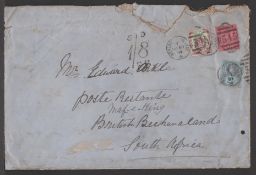 1/8
Mr. Edward
Poste Restante
Mafe-King
British Bechuanaland
South Africa